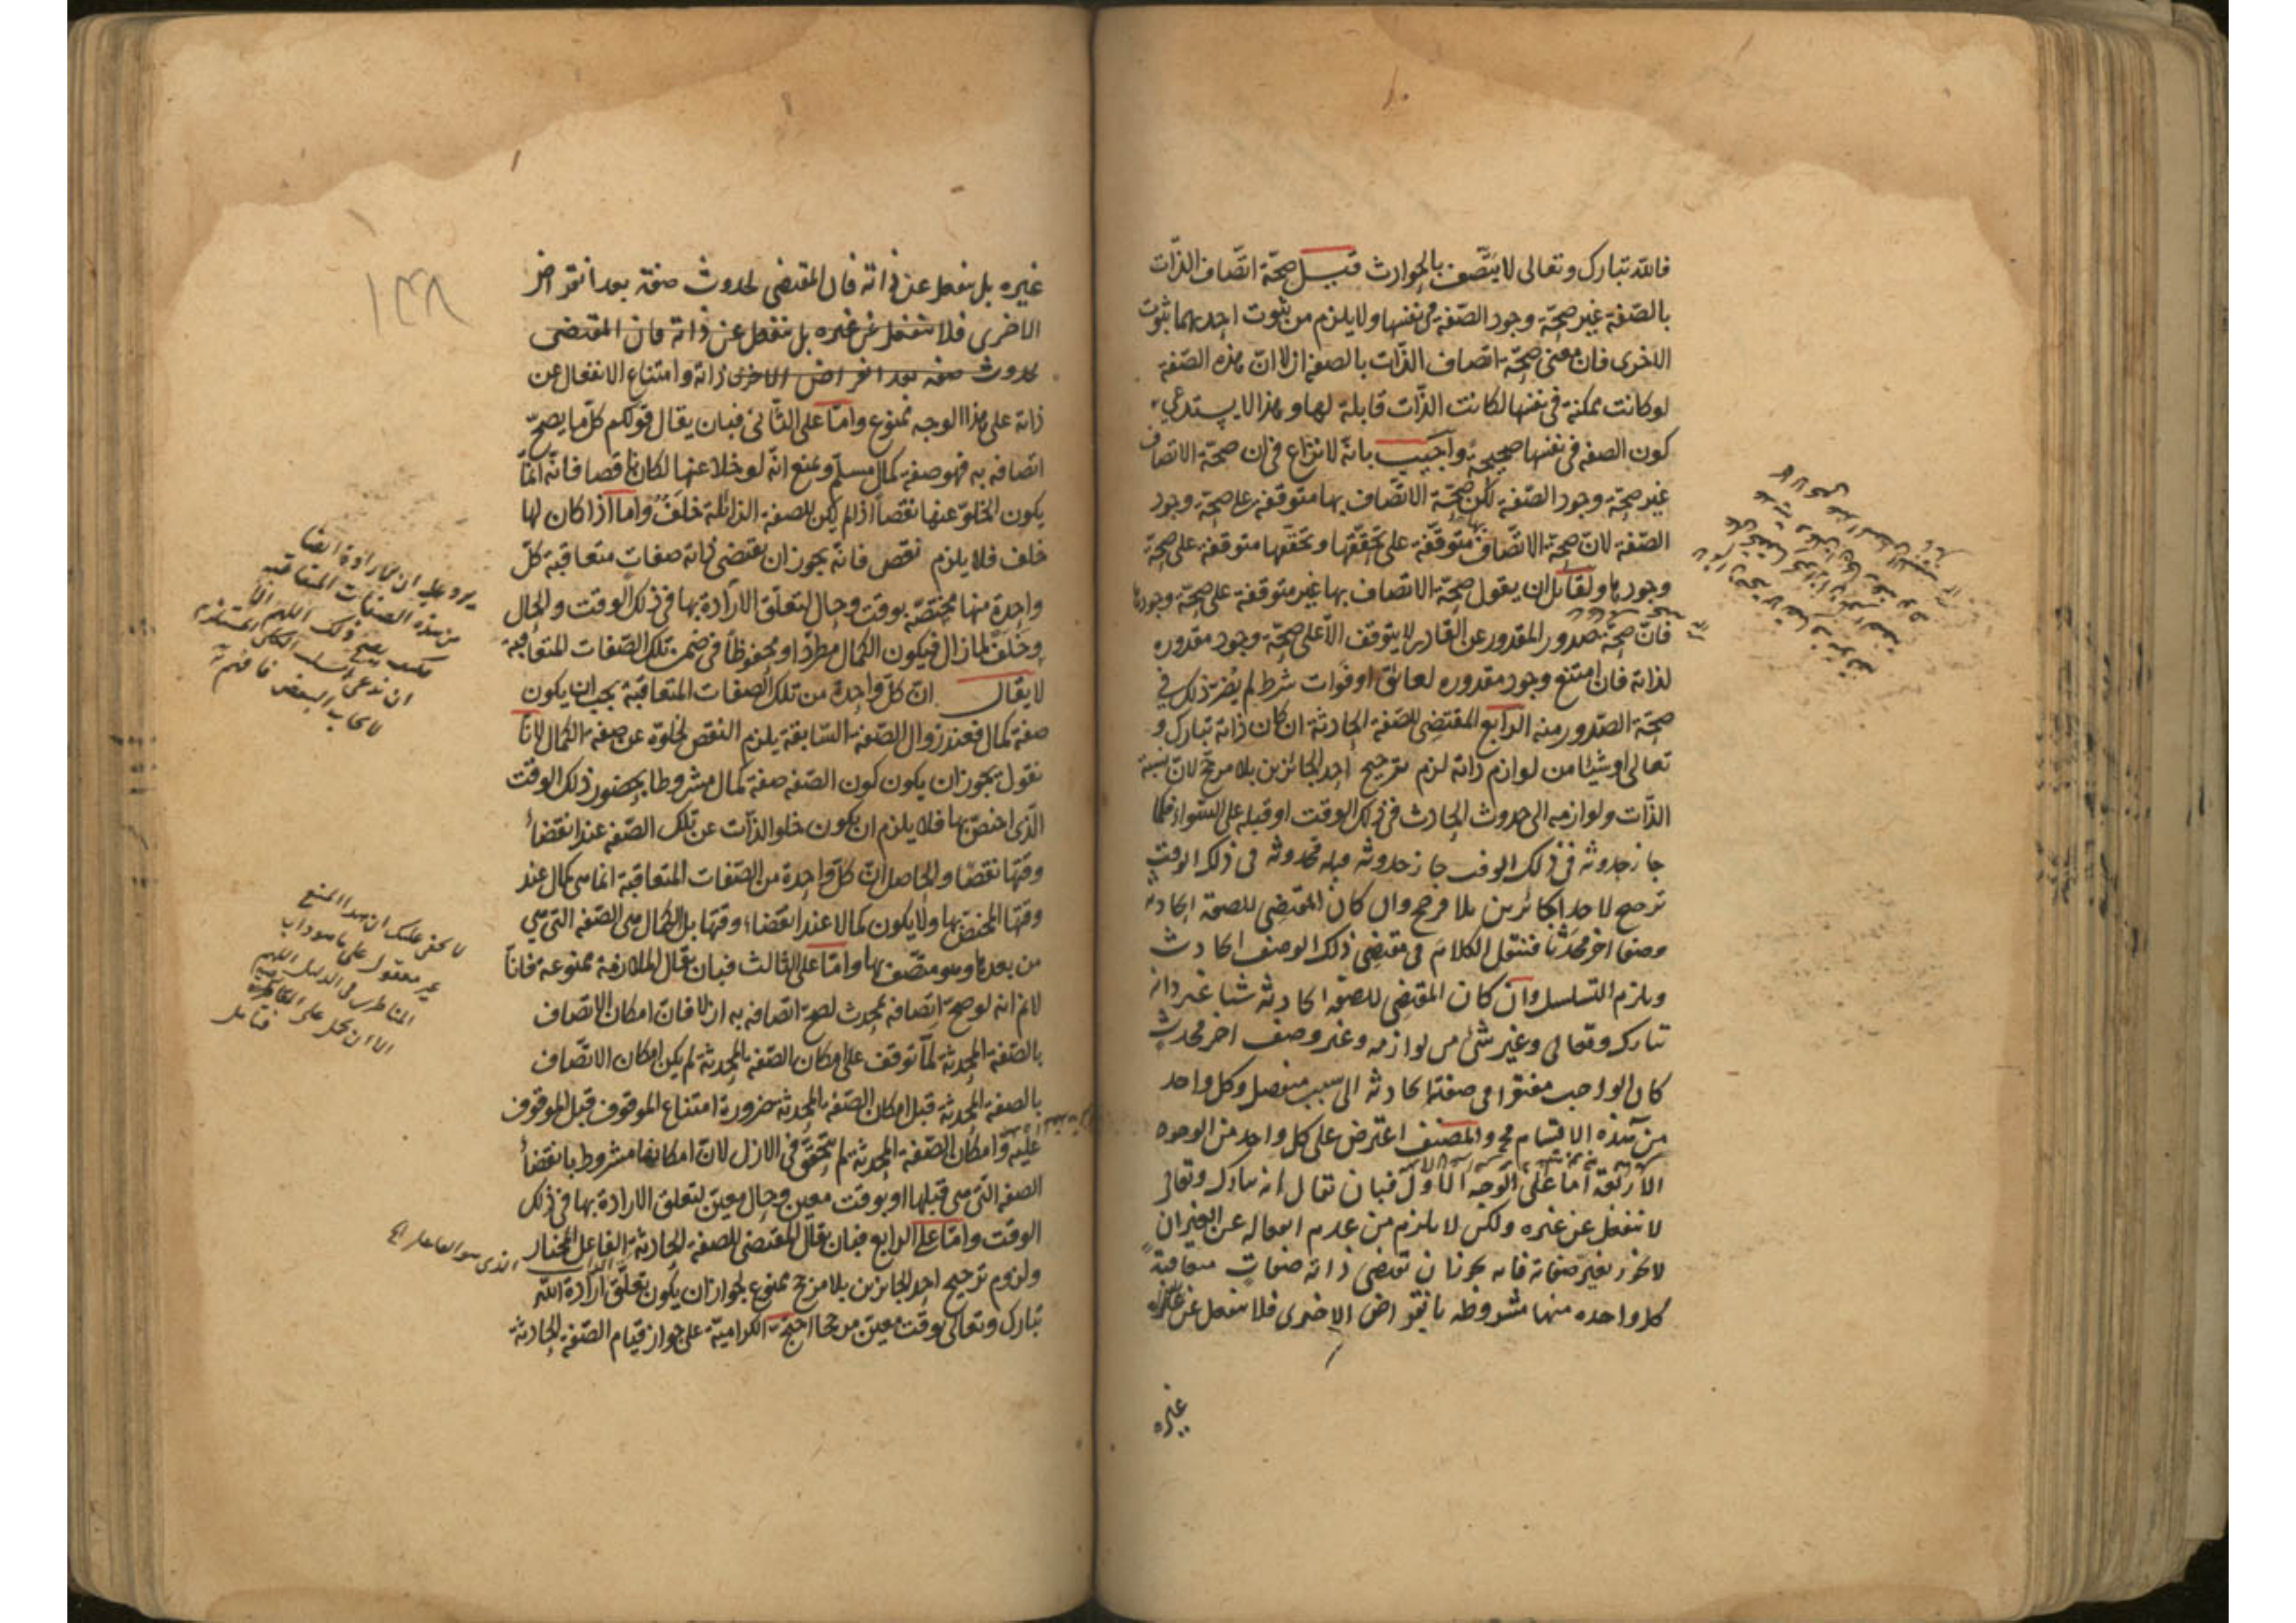 فالله تبارك وتعالى لا يتصف بالحوادث قيل صحة اتصاف الذات
بالصفة غير صحة وجود الصفة في نفسها ولا يلزم من ثبوت احديهما ثبوت
الاخرى فان معنى صحة اتصاف الذات بالصفة ازلا ان هذه الصفة
لو كانت ممكنة في نفسها لكانت الذات قابلة لها وهذا لا يستدعي
كون الصفه في نفسها صحيحة واجيب بانه لا نزاع في ان صحة الاتصاف
غير صحة وجود الصفة لكن صحة الاتصاف بها متوقفة على صحة وجود
الصفة لان صحة الاتصاف بها متوقفة على تحققها وتحققها متوقفة على صحة
وجودها ولقائل ان يقول صحة الاتصاف بها غير متوقفة على صحة وجودها
فان صحة صدور المقدور عن القادر لا يتوقف الا على صحة وجود مقدوره
لذاته فان امتنع وجود مقدوره لعائق او فوات شرط لم يضر ذلك في
صحة الصدور منه الرابع المقتضي للصفة الحادثة ان كان ذاته تبارك و
تعالى او شيئا من لوازم ذاته لزم ترجيح احد الجائزين بلا مرجح لان نسبة
الذات ولوازمه الى حدوث الحادث في ذلك الوقت او قبله على السواء فكما
جاز حدوثه في ذلك الوقت جاز حدوثه قبله فحدوثه في ذلك الوقت
ترجيح لاحد الجائزين بلا مرجح وان كان المقتضي للصفة الحادثه
وصفا اخر محدثا فننقل الكلام في مقتضي ذلك الوصف الحادث
ويلزم التسلسل وان كان المقتضي للصفة الحادثة شيئا غير ذاته
تبارك وتعالى وغير شئ من لوازمه وغير وصف اخر محدث
كان الواجب مفتقرا في صفته الحادثه الى سبب منفصل وكل واحد
من هذه الاقسام مح والمصنف اعترض على كل واحد من الوجوه
الاربعة اما على الوجه الاول فبان يقال انه تبارك وتعالى
لا ينفعل عن غيره ولكن لا يلزم من عدم انفعاله عن الغير ان
لا يجوز تغير صفاته فانه يجوز ان تقتضي ذاته صفات متعاقبة
كل واحده منها مشروطه بانقراض الاخرى فلا ينفعل عن
غيره
١٣٨
غيره بل ينفعل عن ذاته فان المقتضي لحدوث صفة بعد انقراض
الاخرى فلا ينفعل عن غيره بل ينفعل عن ذاته فان المقتضي
لحدوث صفه بعد انقراض الاخرى ذاته وامتناع الانفعال عن
ذاته على هذا الوجه ممنوع واما على الثاني فبان يقال قولكم كل ما يصح
اتصافه به فهو صفة كمال مسلم ونمنع انه لو خلا عنها لكان ناقصا فانه انما
يكون الخلو عنها نقصا اذا لم يكن للصفة الزائلة خلف واما اذا كان لها
خلف فلا يلزم نقص فانه يجوز ان يقتضي ذاته صفات متعاقبة كل
واحدة منها مختصة بوقت وحال لتعلق الارادة بها في ذلك الوقت والحال
وخلف لما زال فيكون الكمال مطردا ومحفوظا في ضمن تلك الصفات المتعاقبة
لا يقال ان كل واحدة من تلك الصفات المتعاقبة يجب ان يكون
صفة كمال فعند زوال الصفة السابقة يلزم النقص لخلوه عن صفة الكمال لانا
نقول يجوز ان يكون كون الصفه صفة كمال مشروطا بحضور ذلك الوقت
الذي اختص بها فلا يلزم ان يكون خلو الذات عن تلك الصفه عند انقضاء
وقتها نقصا والحاصل ان كل واحدة من الصفات المتعاقبة انما هي كمال عند
وقتها المختص بها ولا يكون كمالا عند انقضاء وقتها بل الكمال هي الصفه التي هي
من بعدها وهو متصف بها واما على الثالث فبان يقال الملازمة ممنوعة فانا
لانم انه لو صح اتصافه بمحدث لصح اتصافه به ازلا فان امكان الاتصاف
بالصفة المحدثة لما توقف على امكان الصفة المحدثة لم يكن امكان الاتصاف
بالصفة المحدثة قبل امكان الصفة المحدثة ضرورة امتناع الموقوف قبل الموقوف
عليه وامكان الصفة المحدثة لم يتحقق في الازل لان امكانها مشروط بانقضاء
الصفه التي هي قبلها او بوقت معين وحال معين لتعلق الارادة بها في ذلك
الوقت واما على الرابع فبان يقال المقتضي للصفة الحادثة الفاعل المختار
ولزوم ترجيح احد الجائزين بلا مرجح ممنوع لجواز ان يكون تعلق ارادة الله
تبارك وتعالى بوقت معين مرجحا احتج الكرامية على جواز قيام الصفة الحادثة
من هذه الصفات المتعاقبة
لا يخفى عليك ان هذا المنع
الا ان يحمل على
فتامل